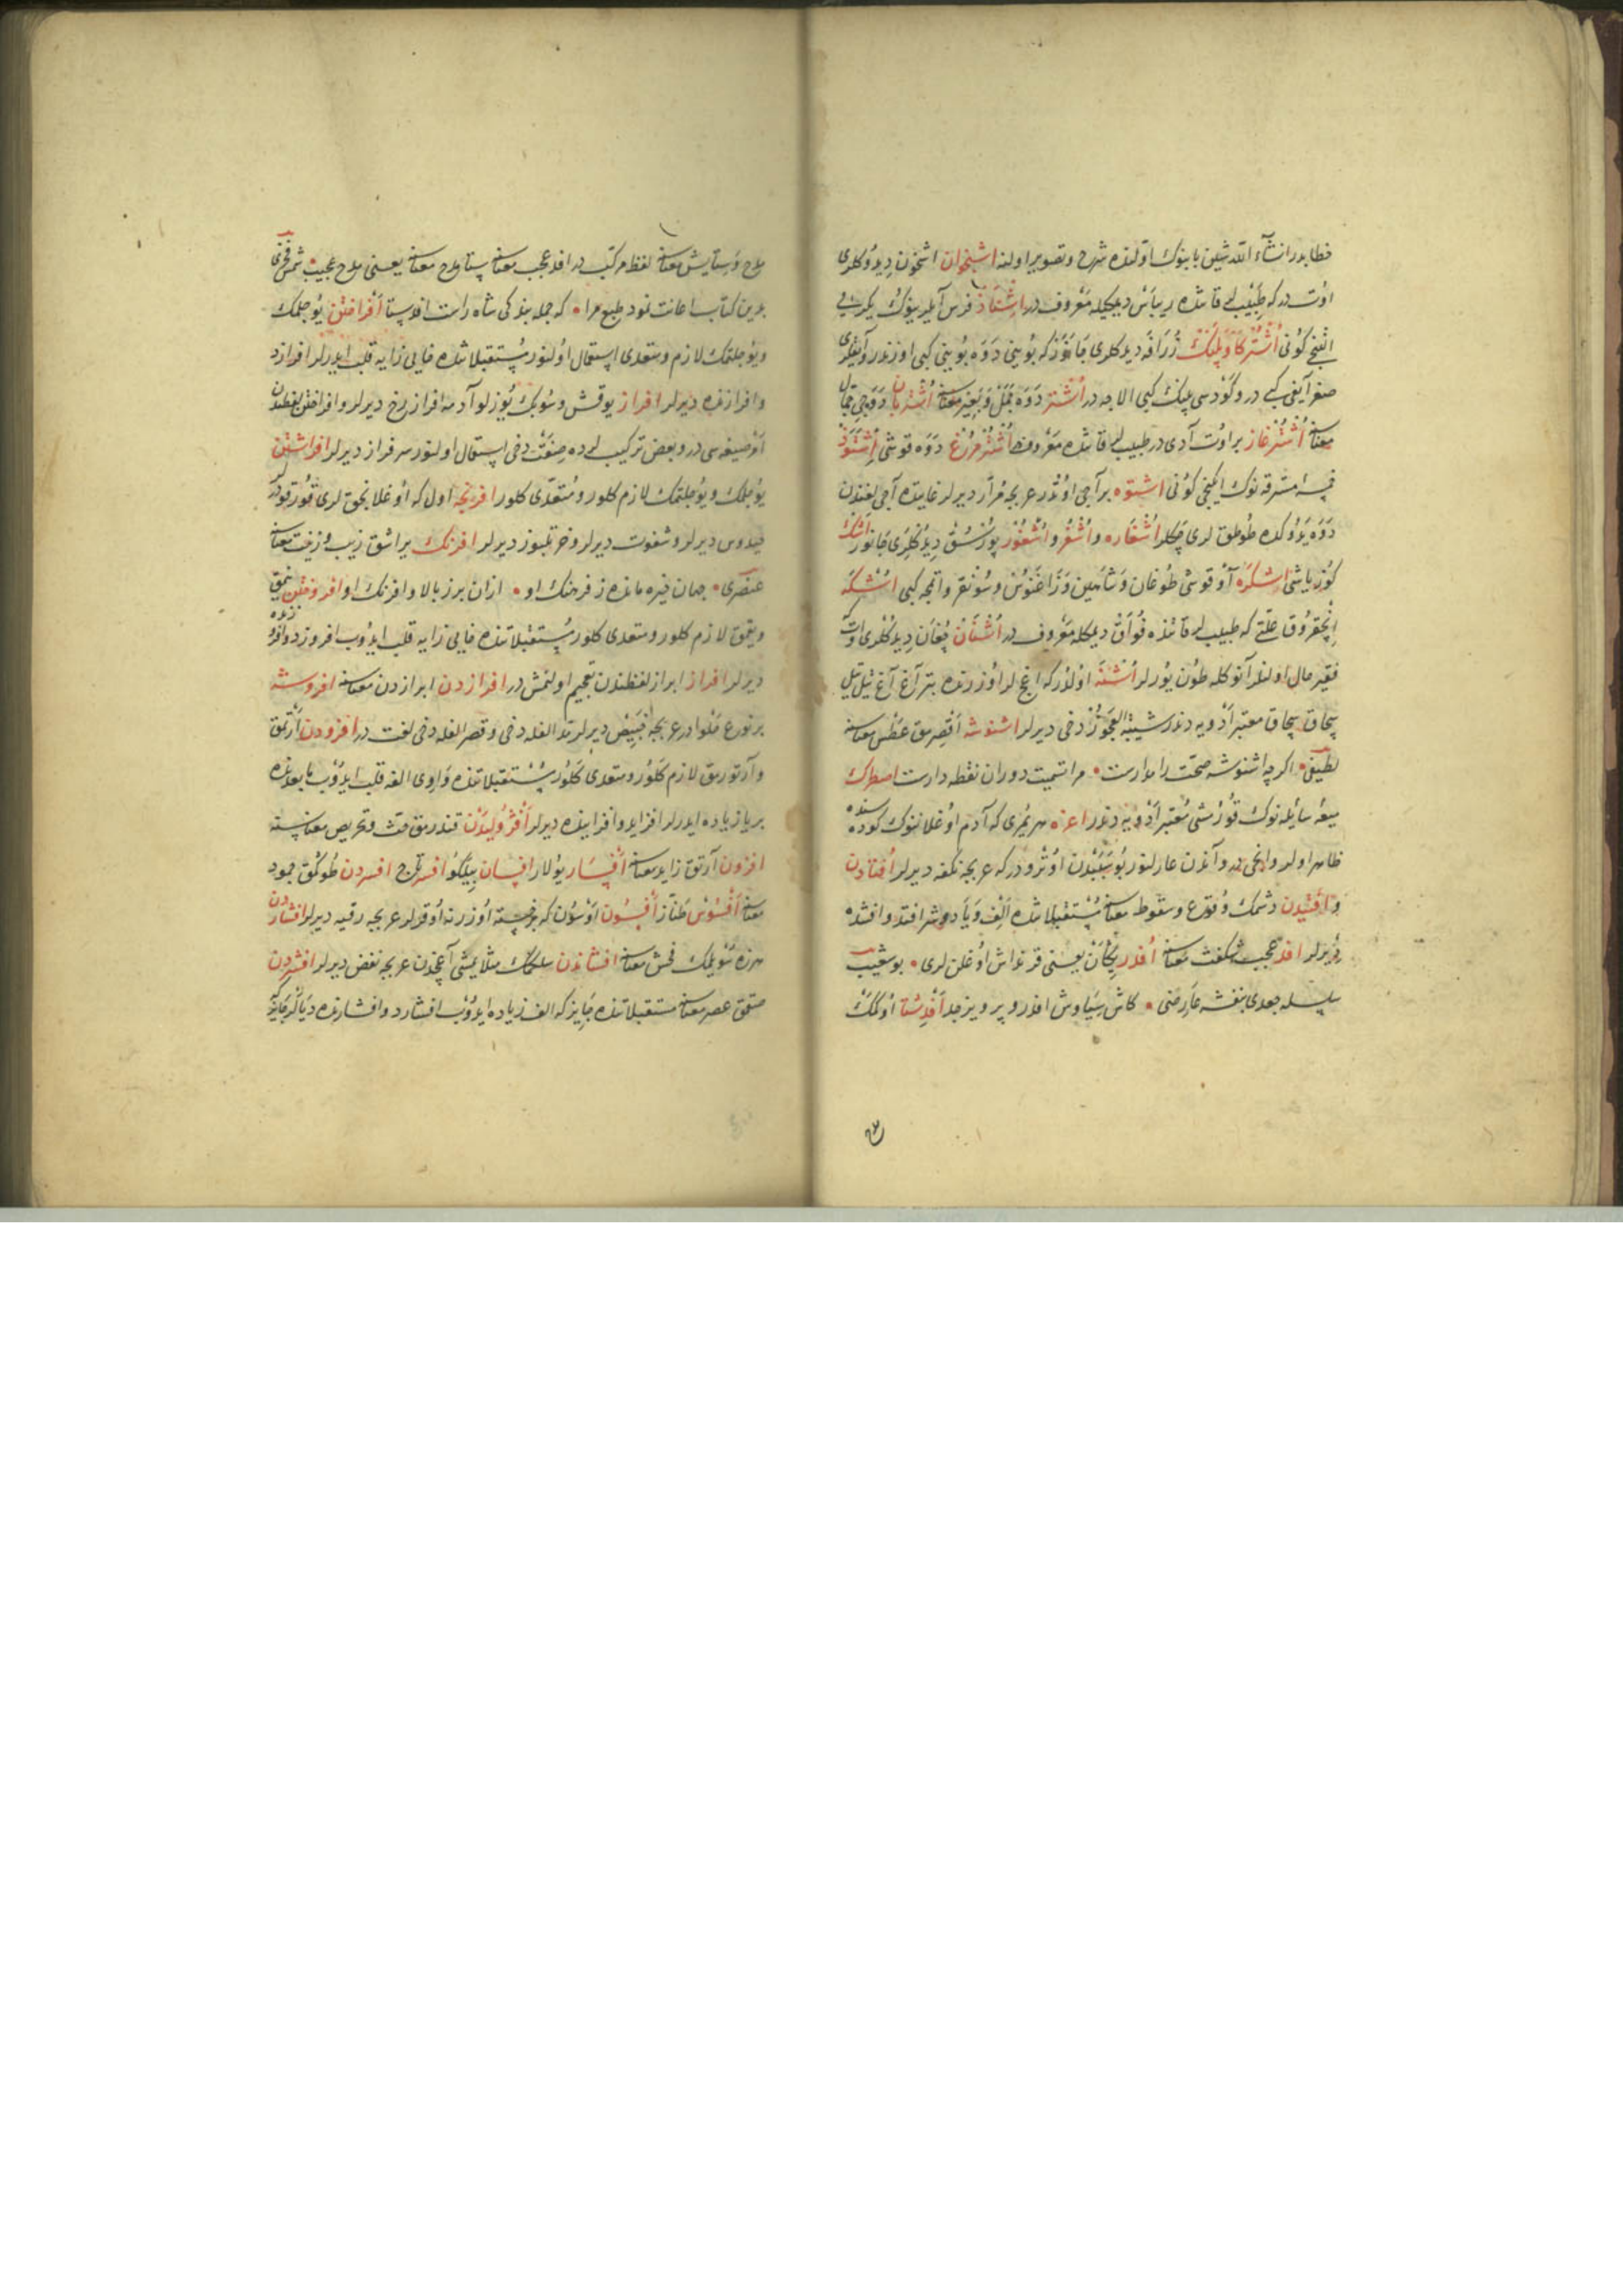 خطابدر انشاء الله شین بابنوك اولنده شرح و تصویر اولنه اشخوان اشخون دیدوكلری
اوت در كه طبیب لر قاتنده ریباس دیمكله معروف در اشتاذ فرس آیلرینوك یكرمی
النجی كونی اشتر كاو پلنك زرافه دیدكلری جانوردر كه بوینی دوه بوینی كبی اوزندر و آیقلری
صغر آیغی كبی در و كودسی پلنك كبی الاجه در اشتر دوه جمل و بعیر معناسنه اشتربان دوه جی جمال
معناسنه اشترغاز بر اوت آدی در طبیب لر قاتنده معروف اشترمرغ دوه قوشی اشتوذ
خمسه مسترقه نوك ایكنجی كونی اشتوه بر آجی اوتدر عربجه مرار دیرلر غایتده آجی لغندن
دوه یدوكده طوطق لری چكلر اشغاره و اشغر و اشغور پورسق دیدكلری جانور اشك
كوز یاشی اشكره آو قوشی طوغان و شاهین و زاغنوس و سونقر و اتمجه كبی اشكه
انچقروق علتی كه طبیب لر قاتنده فواق دیمكله معروف در اشنان چغان دیدكلری اوت كه
فقیر حال اولنلر آنوكله طون یورلر اشنه اولدر كه اغجلر اوزرنده بتر آغ آغ تیل تیل
سچاق سچاق معتبر ادویه دندر شیبة العجوز دخی دیرلر اشنوشه اقصرمق عطس معناسنه
لطیفی • اكرچه اشنوشه صحت را مدارست • مرا تشمیت دوران نقطه دارست اصطرك
میعه سایله نوك قوروسی معتبر ادویه دندر اعزه هر یمری كه آدم اوغلاننوك كوده سنده
ظاهر اولر و انجی در و آندن عارلنور بو سببدن اوترو در كه عربجه نكفه دیرلر افتادن
و افتیدن دشمك وقوع و سقوط معناسنه مستقبلاتنده الف و یا دوشر افتد و افتنده
دیرلر افد عجیب شكفت معناسنه افدر یكان یعنی قرنداش اوغلن لری • بو شعیب
سلسله جعدی بنفشه عارضی • كاش سیاوش افدر و پرویز جد افدستا اوكمك
مدح و ستایش معناسنه لفظ مركب در افد عجب معناسنه ستا مدح معناسنه یعنی مدح عجیب • شمس فخری
بدین كتاب اعانت نمود طبع مرا • كه جمله بندكی شاه راست افدستا افراختن یوجلمك
و یوجلتمك لازم و متعدی استعمال اولنور مستقبلاتنده خایی زایه قلب ایدرلر افرازد
و افرازنده دیرلر افراز یوقش و سوبك یوزلو آدمه افراز رخ دیرلر و افراختن لفظندن
امر صیغه سی در و بعض تركیب لرده صفت دخی استعمال اولنور سرفراز دیرلر افراشتن
یوجلمك و یوجلتمك لازم كلور و متعدی كلور افرنجه اول كه اوغلانجق لری قورقودر
فیدوس دیرلر و شغوت دیرلر و خرتلبوز دیرلر افرنك یراشق زیب و زینت معناسنه
عنصری • جهان خیره مانده ز فرهنك او • از آن برز بالا و افرنك او افروختن یمق
و یقمق لازم كلور و متعدی كلور مستقبلاتنده خایی زایه قلب ایدوب افروزد و افروزنده
دیرلر افراز ابراز لفظندن تعجیم اولنمش در افرازدن ابرازدن معناسنه افروشه
بر نوع حلوادر عربجه خبیص دیرلر مد الفله دخی و قصر الفله دخی لغت در افزودن آرتمق
و آرتورمق لازم كلور و متعدی كلور مستقبلاتنده واوی الفه قلب ایدوب ما بعدنده
بر یا زیاده ایدرلر افزاید و افزاینده دیرلر افژولیدن قندرمق حث و تحریص معناسنه
افزون آرتق زاید معناسنه افسار یولار افسان بیلكو افسر تاج افسردن طوكمق جمود
معناسنه افسوس طناز افسون اوسون كه خسته اوزرنه اوقرلر عربجه رقیه دیرلر افشاردن
هرزه سویلمك فحش معناسنه افشاندن سلكمك مثلا یمشی آغجدن عربجه نفض دیرلر افشردن
صقمق عصر معناسنه مستقبلاتنده جایزدر كه الف زیاده ایدوب افشارد و افشارنده دیالر جایزدر كه